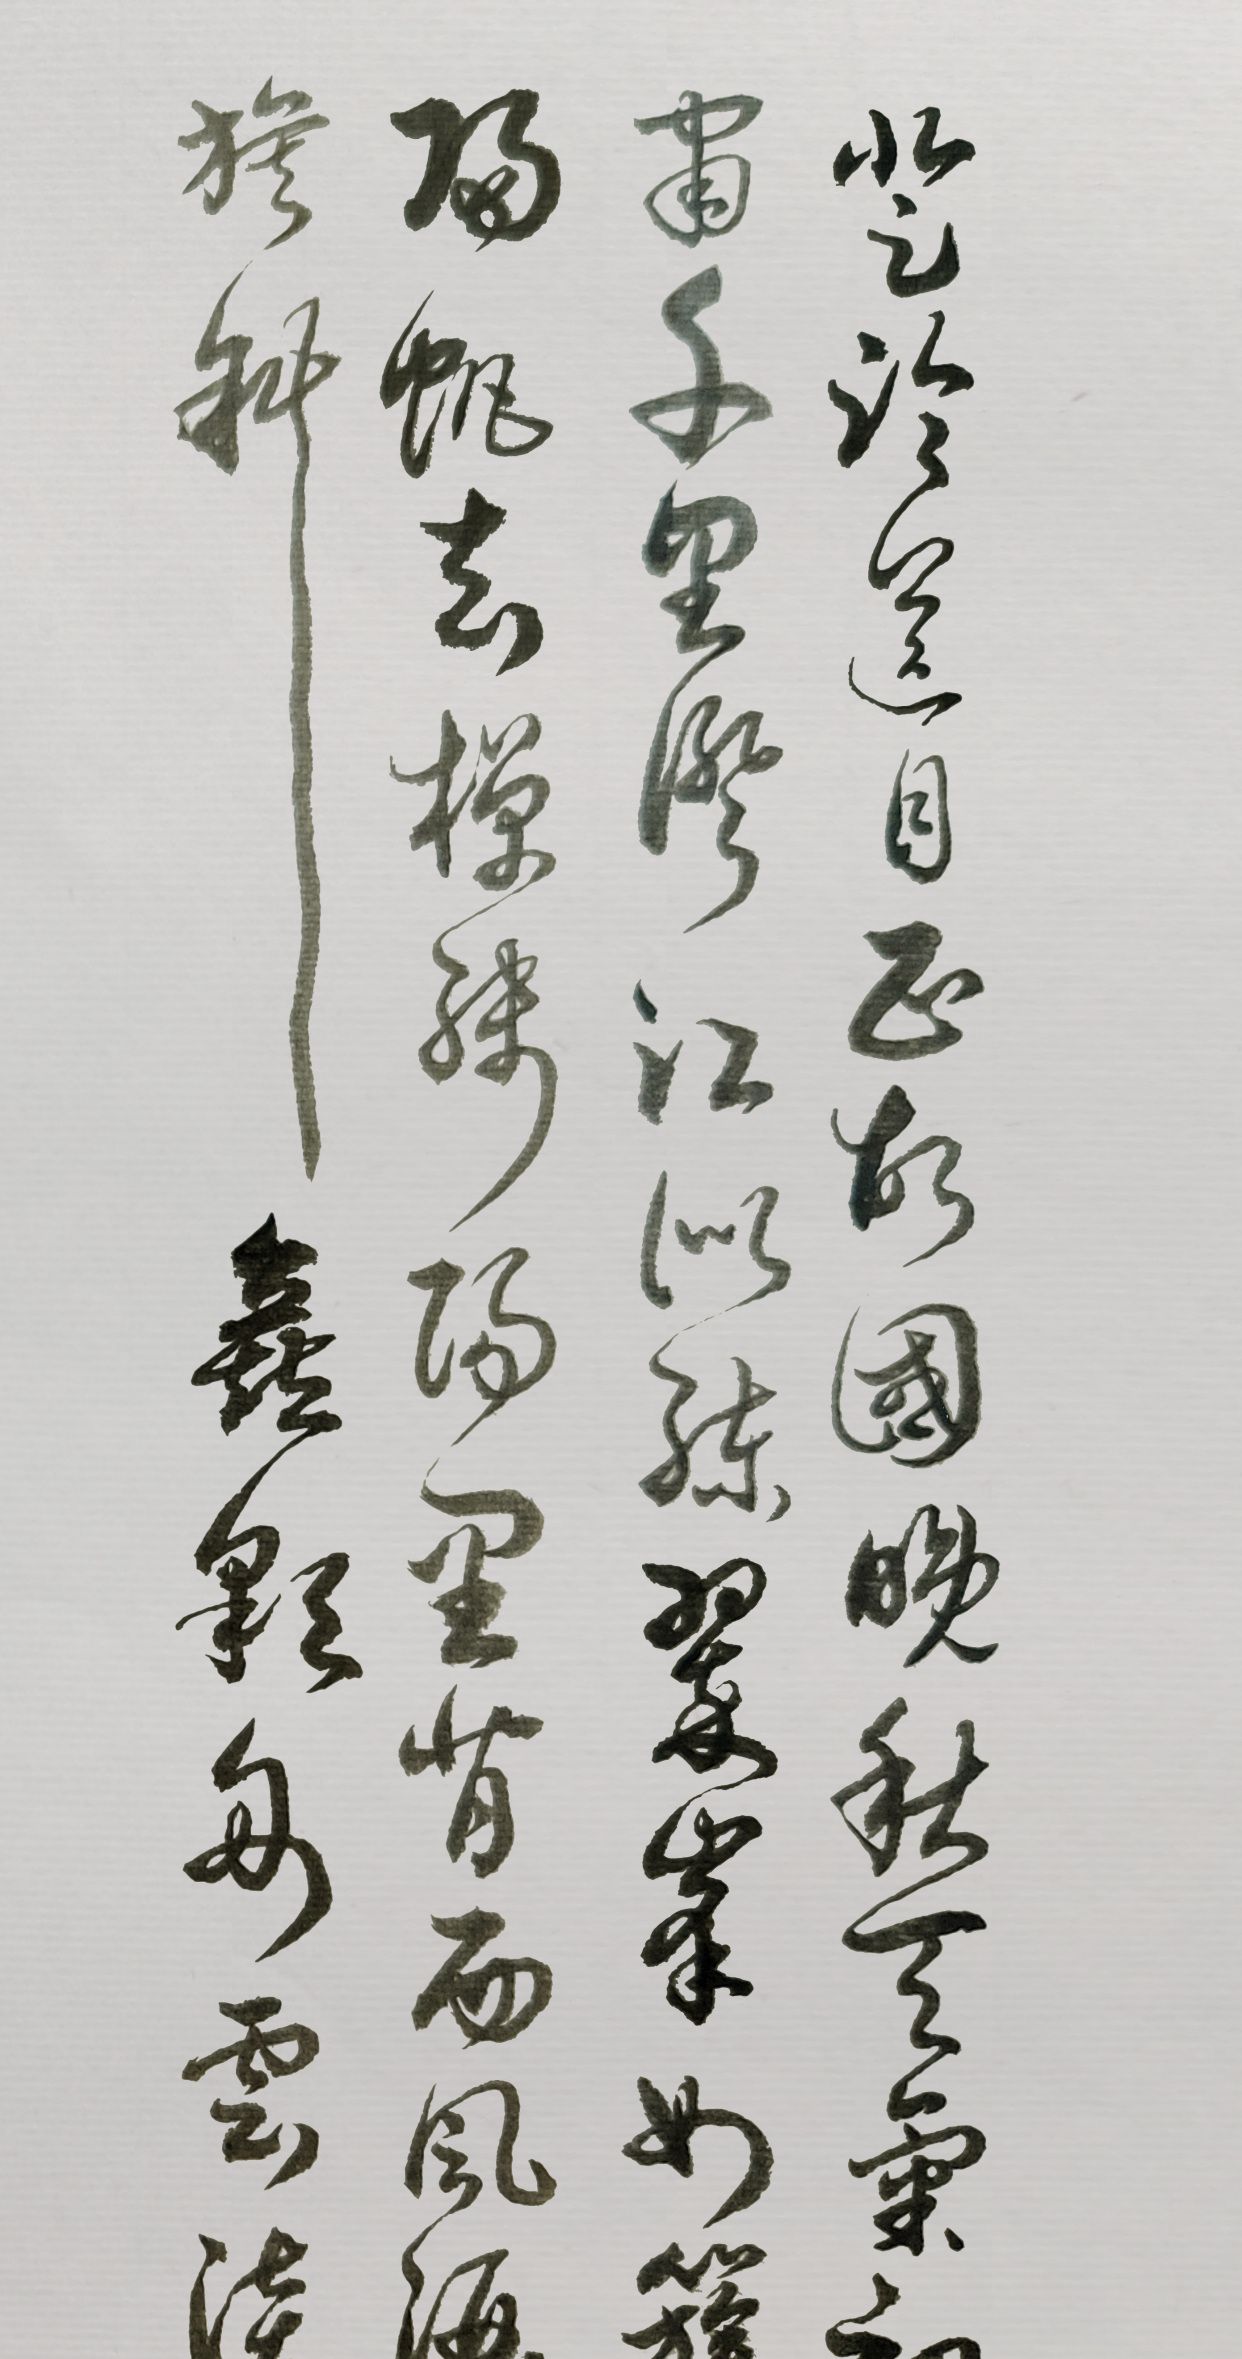 登臨送目正故國晚秋天氣初
肅千里澄江似練翠峯如簇
歸帆去棹殘陽里背西風酒
旗斜矗彩舟雲淡